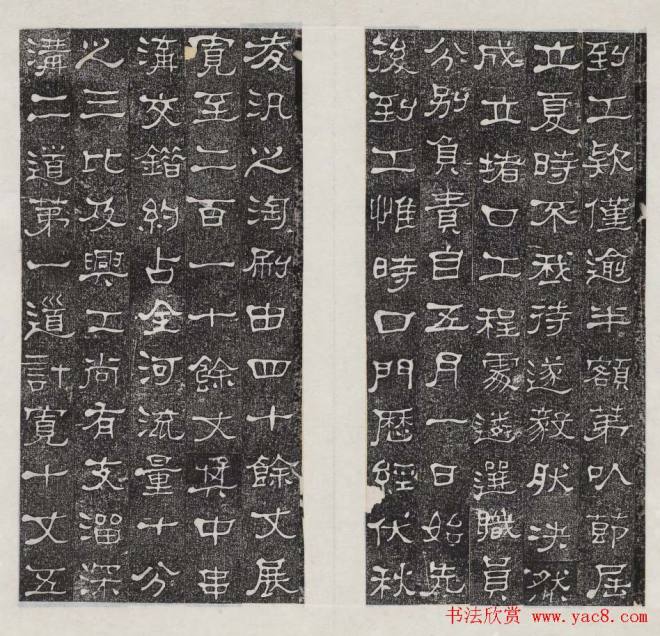 到工欵僅逾半額第以節屆
立夏時不我待遂毅肰決然
成立堵口工程處遴選職員
分別負責自五月一日始先
後到工惟時口門歷經伏秋
凌汛之淘刷由四十餘丈展
寬至二百一十餘丈其中串
溝交錯約占全河流量十分
之三比及興工尚有支溜深
溝二道第一道計寬十丈五
书法欣赏 www.yac8.com